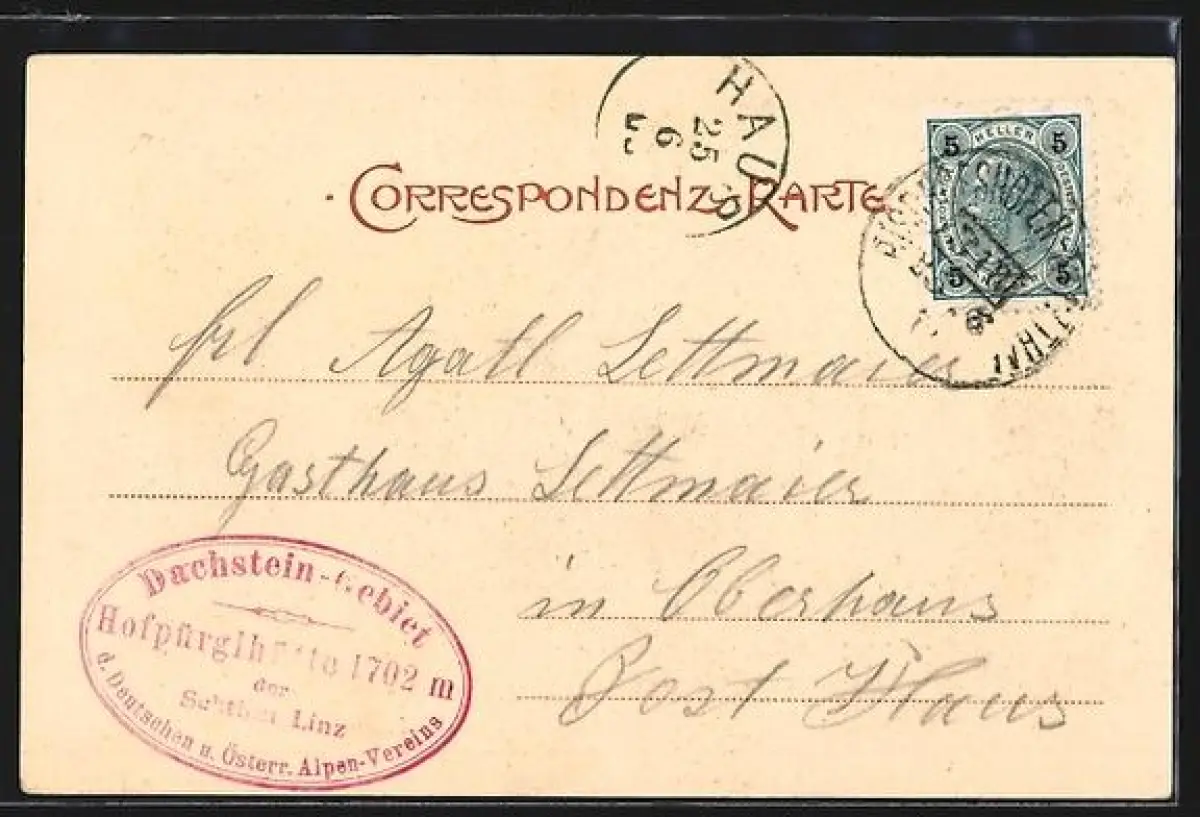 HAUS
25
6
CORRESPONDENZ-KARTE
5 HELLER 5
5 5
frl Agatl Lettmaier
Gasthaus Lettmaier
in Oberhaus
Post Haus
Dachstein-Gebiet
Hofpürglhütte 1702 m
der
Section Linz
d. Deutschen u. Österr. Alpen-Vereins